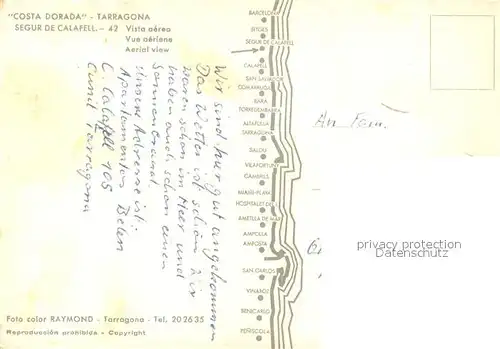 "COSTA DORADA" - TARRAGONA
SEGUR DE CALAFELL. - 42 Vista aérea
Vue aérienne
Aerial view
Wir sind hier gut angekommen
Das Wetter ist schön. Wir
waren schon im Meer und
haben auch schon einen
Sonnenbrand.
Unsere Adresse ist:
Apartamentos Belen
C. Calafell 105
Cunit Tarragona
Foto color RAYMOND - Tarragona - Tel. 202635
Reproducción prohibida - Copyright.
BARCELONA
SITGES
SEGUR DE CALAFELL
CALAFELL
SAN SALVADOR
COMARRUGA
TORREDEMBARRA
ALTAFULLA
TARRAGONA
SALOU
VILAFORTUNY
CAMBRILS
MIAMI-PLAYA
HOSPITALET DEL I.
AMETLLA DE MAR
AMPOLLA
AMPOSTA
SAN CARLOS
VINAROZ
BENICARLO
PEÑISCOLA
An Fam.
privacy protection
Datenschutz